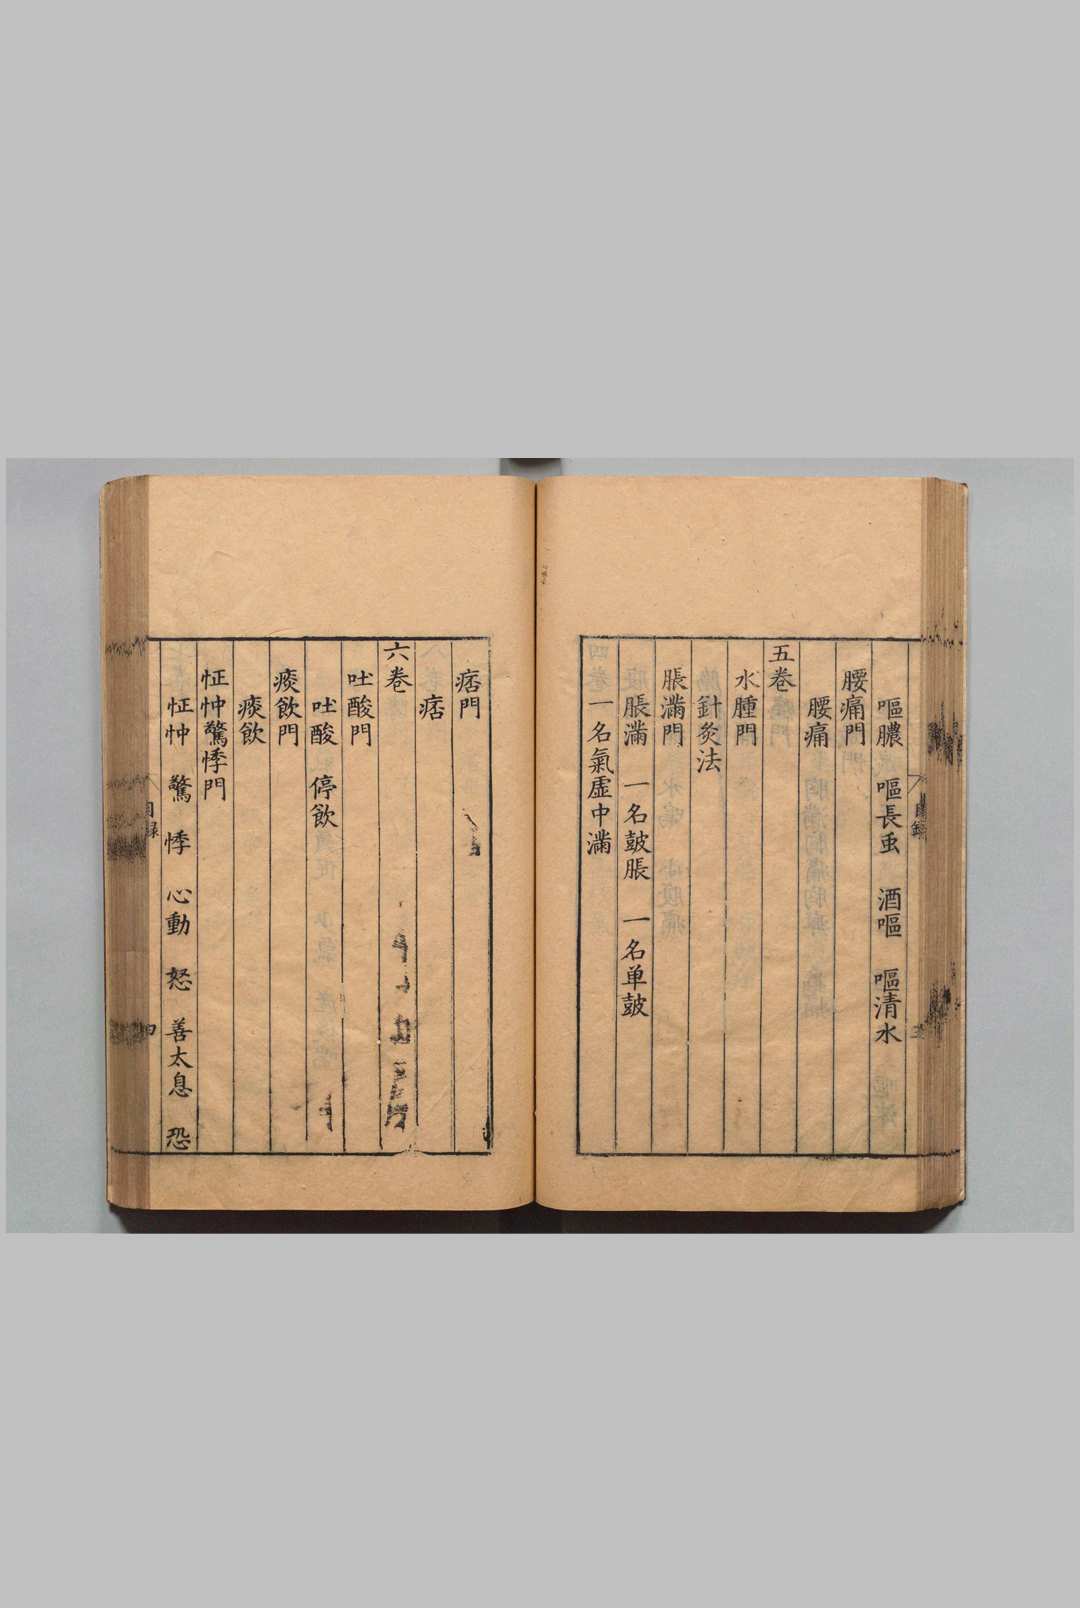 嘔膿 嘔長虫 酒嘔 嘔清水
腰痛門
腰痛
五卷
水腫門
針灸法
脹滿門
脹滿 一名皷脹 一名单皷
一名氣虛中滿
目錄
痞門
痞
六卷
吐酸門
吐酸 停飲
痰飲門
痰飲
怔忡驚悸門
怔忡 驚 悸 心動 怒 善太息 恐
目錄 四